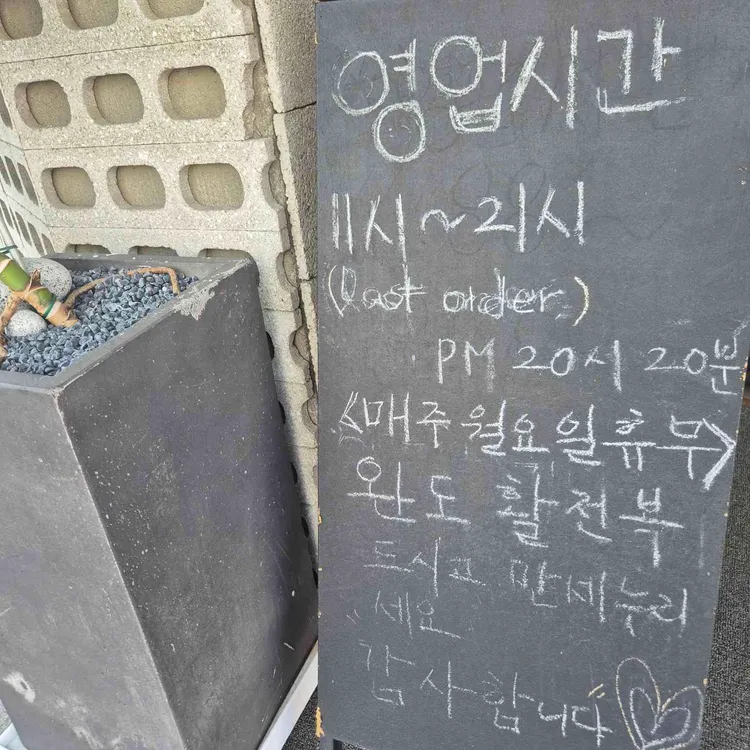 영업시간
11시~21시
(last order)
PM 20시 20분
<매주 월요일 휴무>
완도 활전복
드시고 만세누리
세요
감사합니다